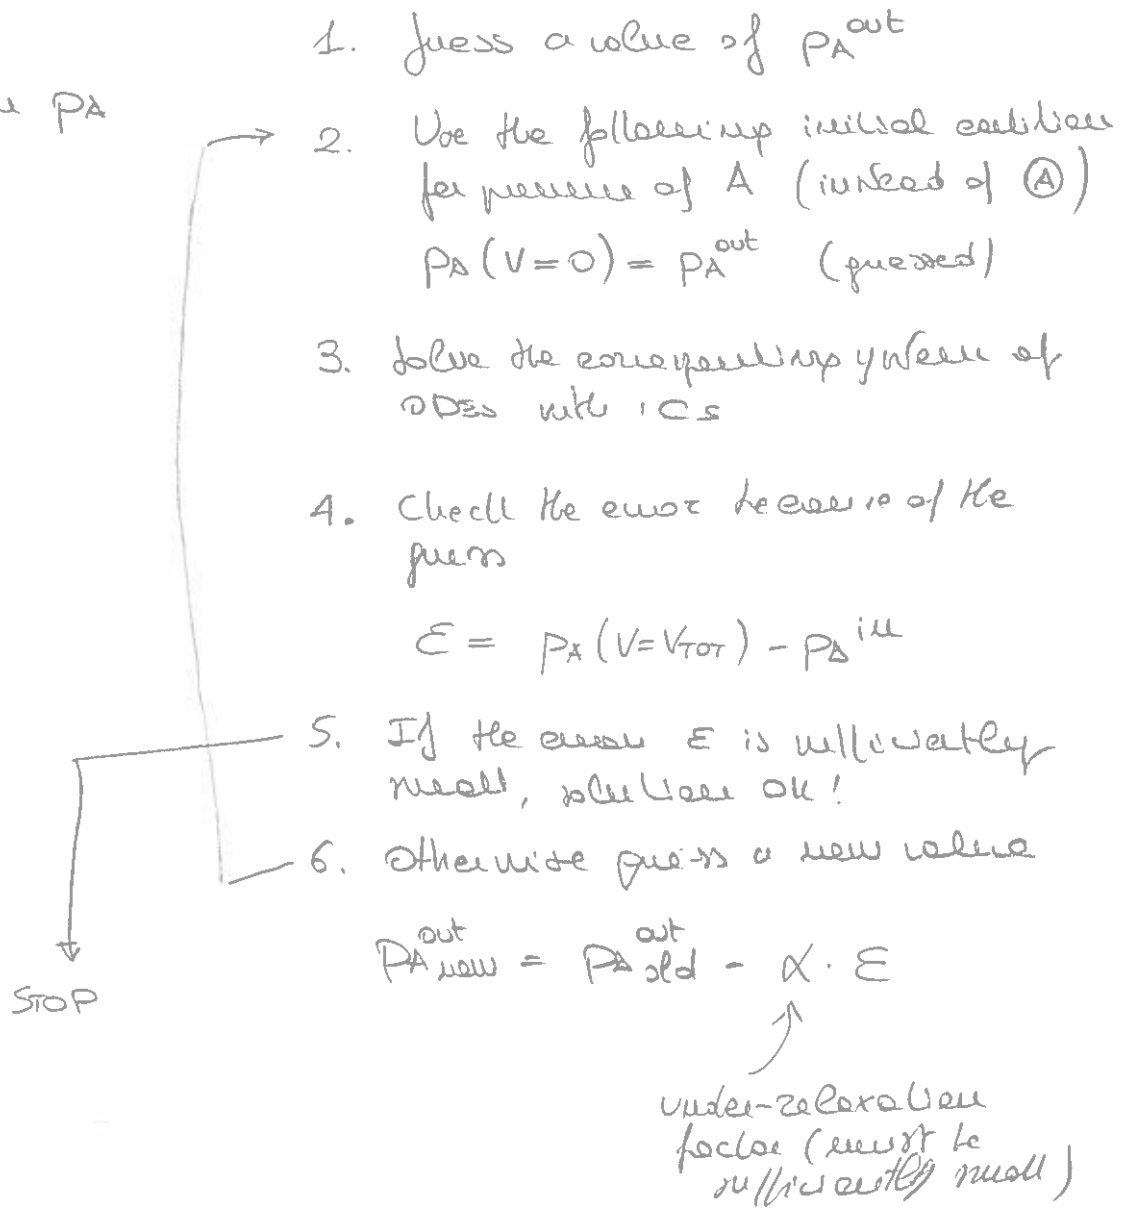 1. Guess a value of pA^out
pA
2. Use the following initial conditions
for pressure of A (instead of Ⓐ)
pA (V=0) = pA^out (guessed)
3. Solve the corresponding system of
ODEs with ICs
4. Check the error because of the
guess
ε = pA (V=VTOT) - pA^in
5. If the error ε is sufficiently
small, solution OK!
6. Otherwise guess a new value
pA^out new = pA^out old - α · ε
STOP
under-relaxation
factor (must be
sufficiently small)